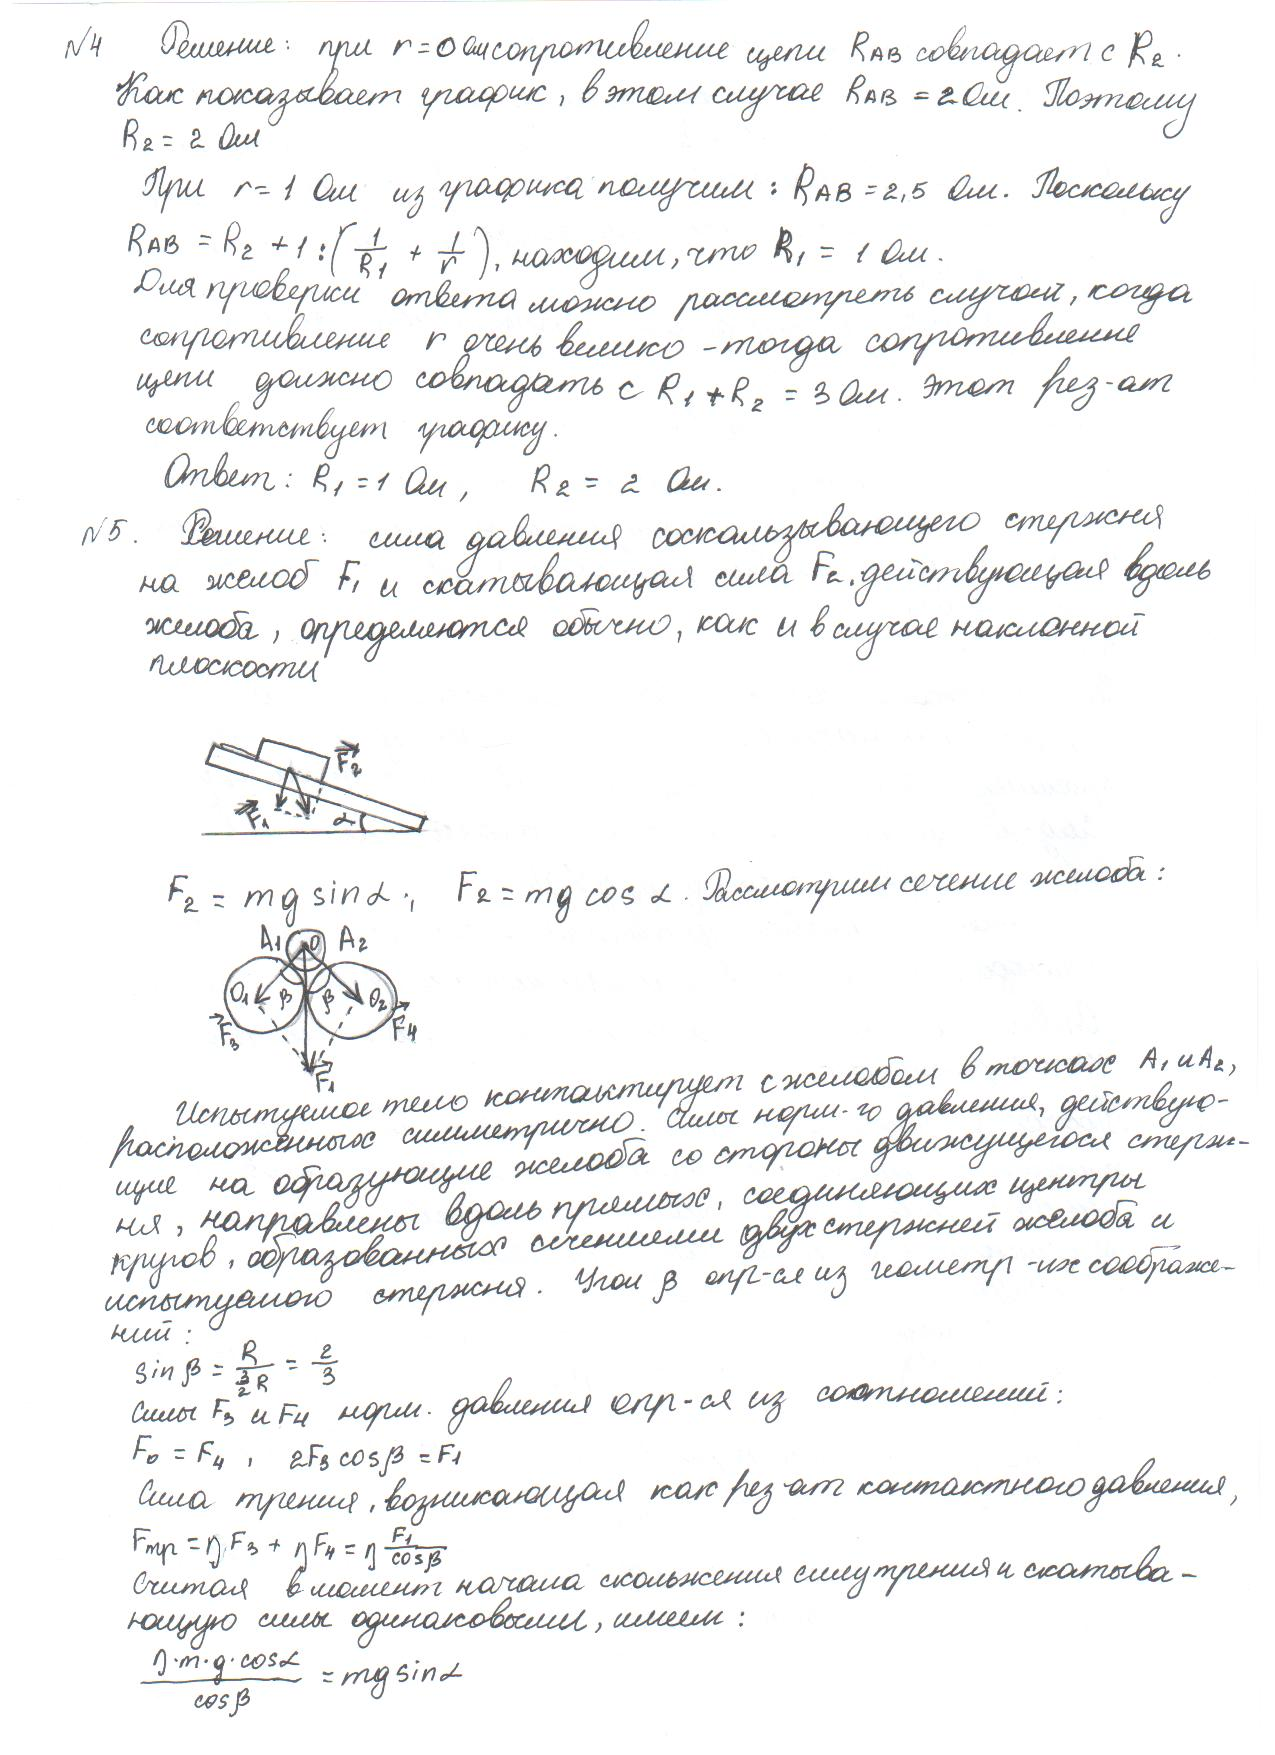 №4 Решение: при r=0 Ом сопротивление цепи RАВ совпадает с R2.
Как показывает график, в этом случае RАВ = 2 Ом. Поэтому
R2 = 2 Ом
При r=1 Ом из графика получим: RАВ = 2,5 Ом. Поскольку
RАВ = R2 + 1:(1/R1 + 1/r), находим, что R1 = 1 Ом.
Для проверки ответа можно рассмотреть случай, когда
сопротивление r очень велико – тогда сопротивление
цепи должно совпадать с R1 + R2 = 3 Ом. Этот рез-ат
соответствует графику.
Ответ: R1 = 1 Ом, R2 = 2 Ом.
№5. Решение: сила давления соскальзывающего стержня
на желоб F1 и скатывающая сила F2, действующая вдоль
желоба, определяются обычно, как и в случае наклонной
плоскости
F2
F1
α
F2 = mg sinα; F2 = mg cos α. Рассмотрим сечение желоба:
A1 O A2
O1 β β O2
F3 F4
F1
Испытуемое тело контактирует с желобом в точках А1 и А2,
расположенных симметрично. Силы норм-го давления, действую-
щие на образующие желоба со стороны движущегося стерж-
ня, направлены вдоль прямых, соединяющих центры
кругов, образованных сечениями двух стержней желоба и
испытуемого стержня. Угол β опр-ся из геометр-их соображе-
ний:
sin β = R/(3/2 R) = 2/3
Силы F3 и F4 норм. давления опр-ся из соотношений:
F0 = F4, 2F3 cosβ = F1
Сила трения, возникающая как рез-ат контактного давления,
Fтр = ηF3 + ηF4 = η F1/cosβ
Считая в момент начала скольжения силу трения и скатыва-
ющую силы одинаковыми, имеем:
η·m·g·cosα/cosβ = mg sinα